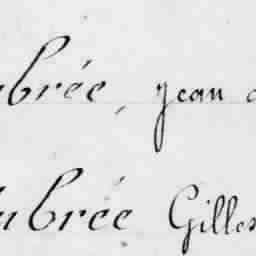 ubrée, Jean
ubrée Gilles